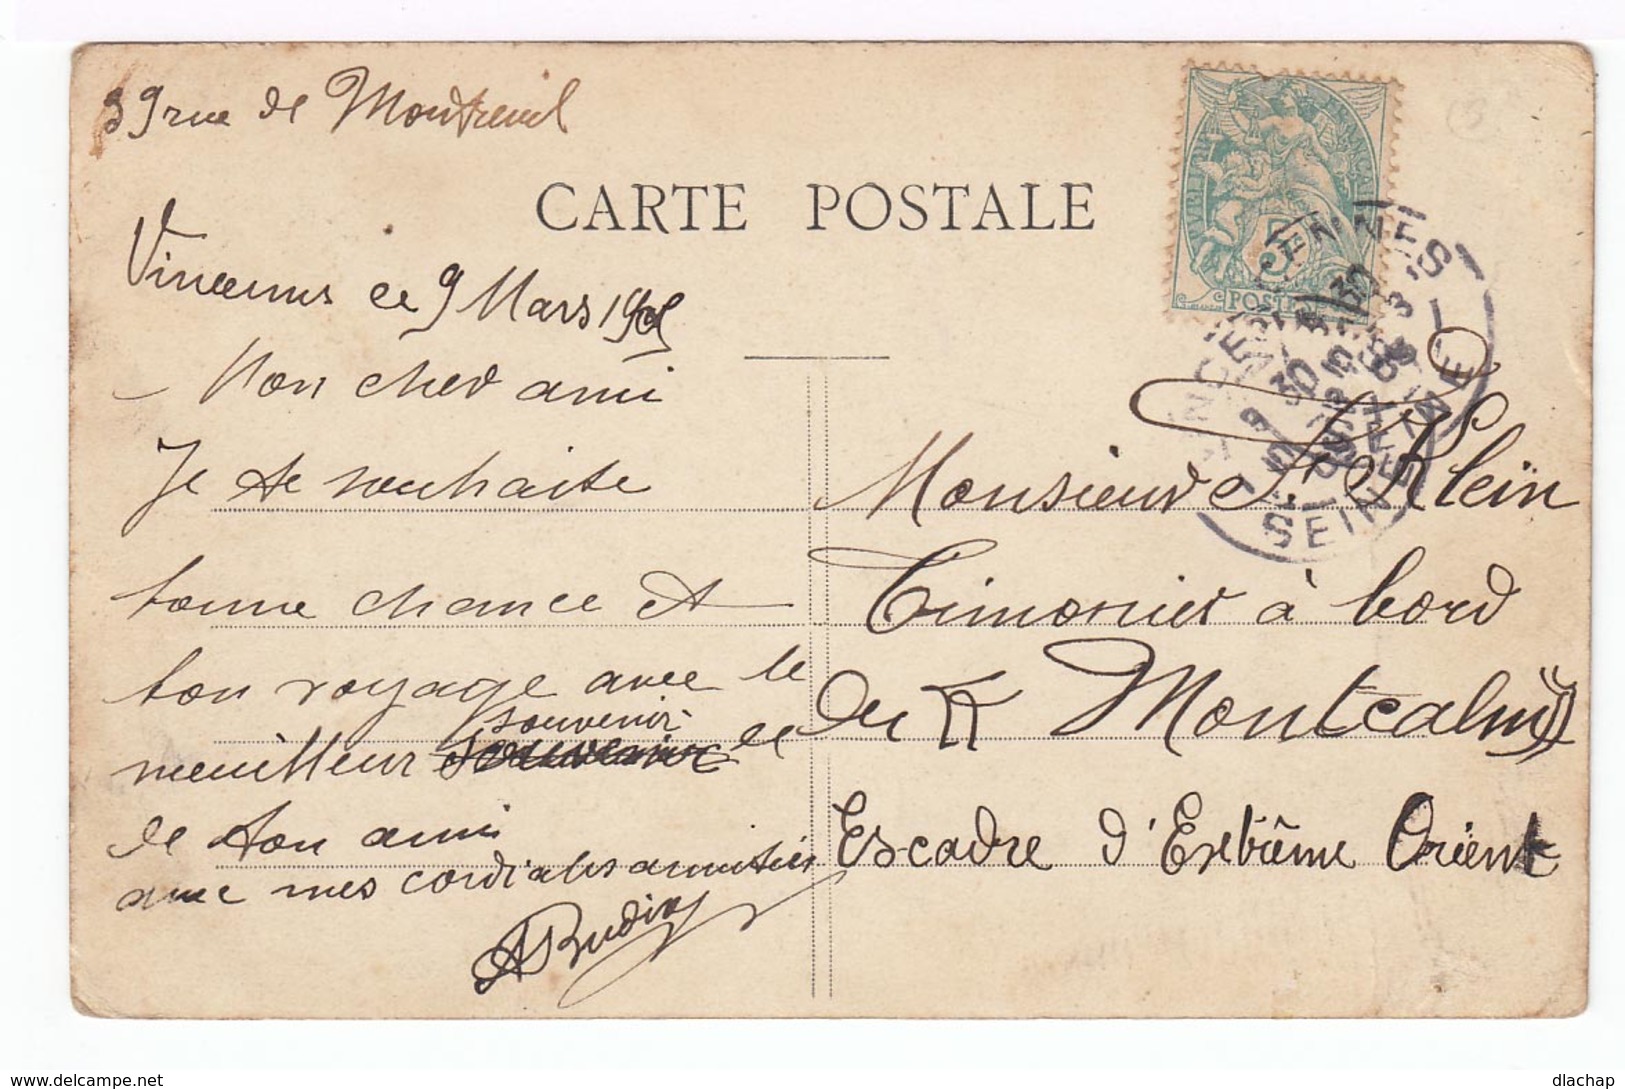 39 rue de Montreuil
CARTE POSTALE
Vincennes ce 9 Mars 1905
Mon cher ami
Je te souhaite
bonne chance et
bon voyage avec le
souvenir
meuilleur
de ton ami
avec mes cordiales amitiés
ABudin
RÉPUBLIQUE FRANÇAISE
5
POSTES
VINCENNES
SEINE
Monsieur F. Klein
Timonier à bord
du " Montcalm "
Escadre d'Extrême Orient
delcampe.net
dlachap